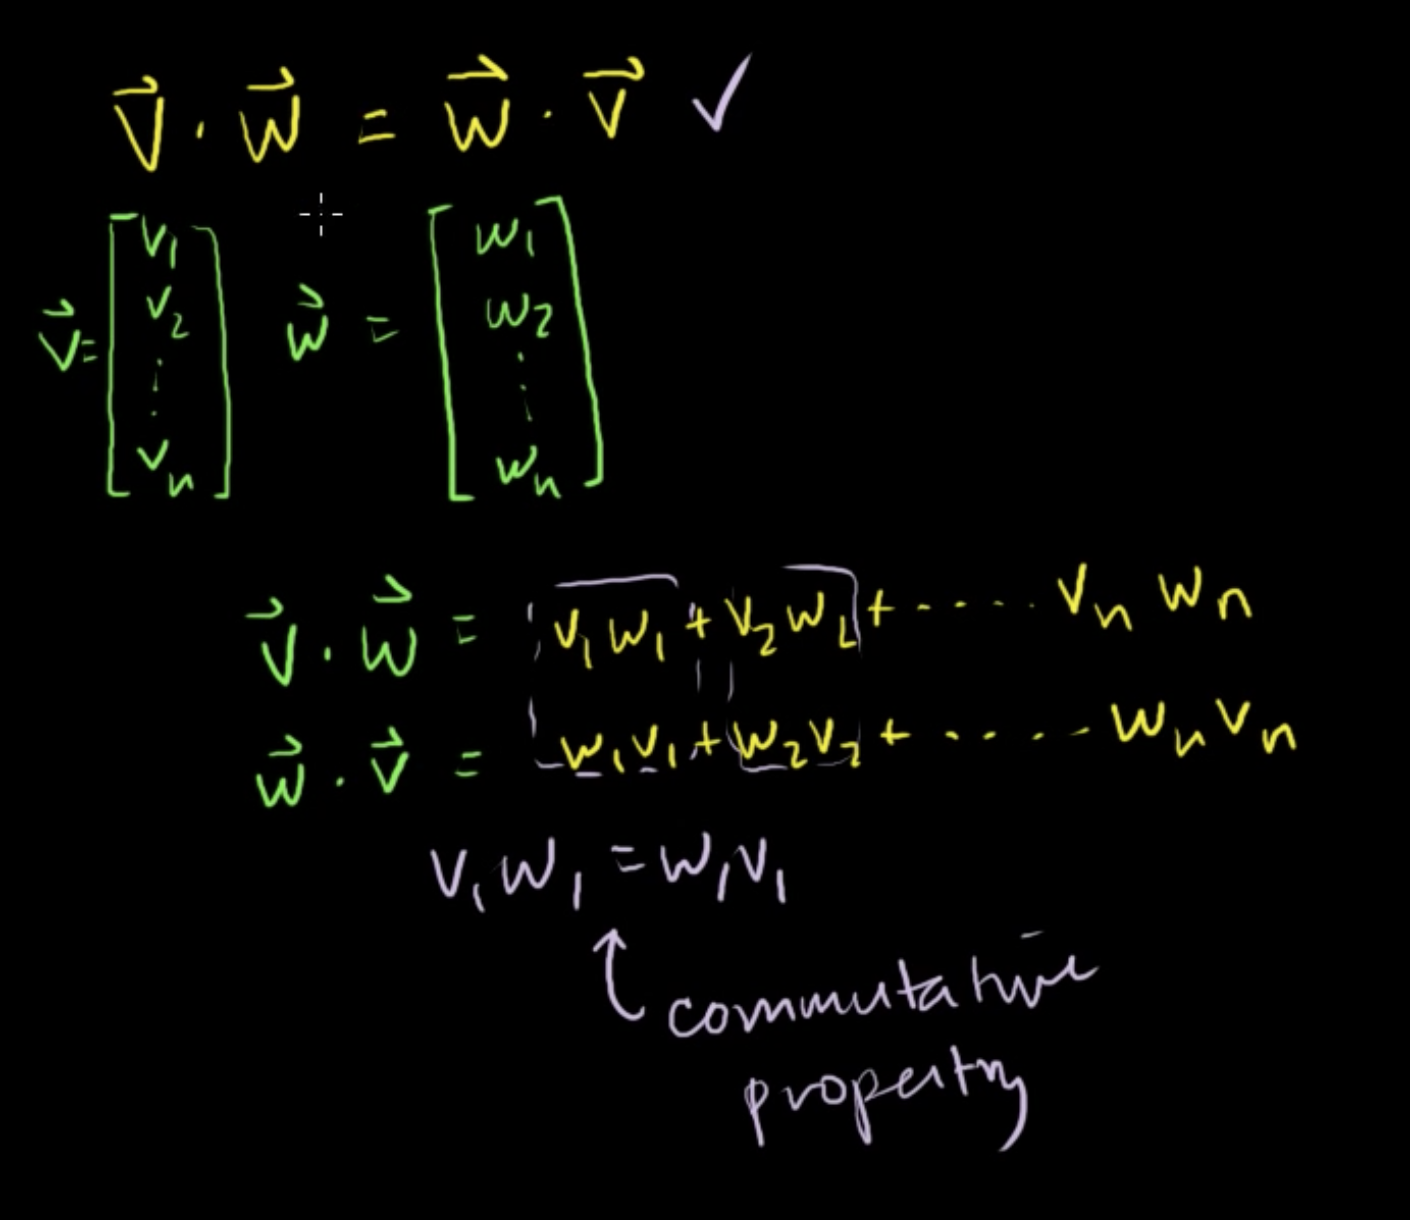 v⃗ · w⃗ = w⃗ · v⃗ ✓
v⃗ = [v₁ v₂ ⋮ vₙ] w⃗ = [w₁ w₂ ⋮ wₙ]
v⃗ · w⃗ = v₁w₁ + v₂w₂ + ···· vₙwₙ
w⃗ · v⃗ = w₁v₁ + w₂v₂ + ···· wₙvₙ
v₁w₁ = w₁v₁
commutative
property